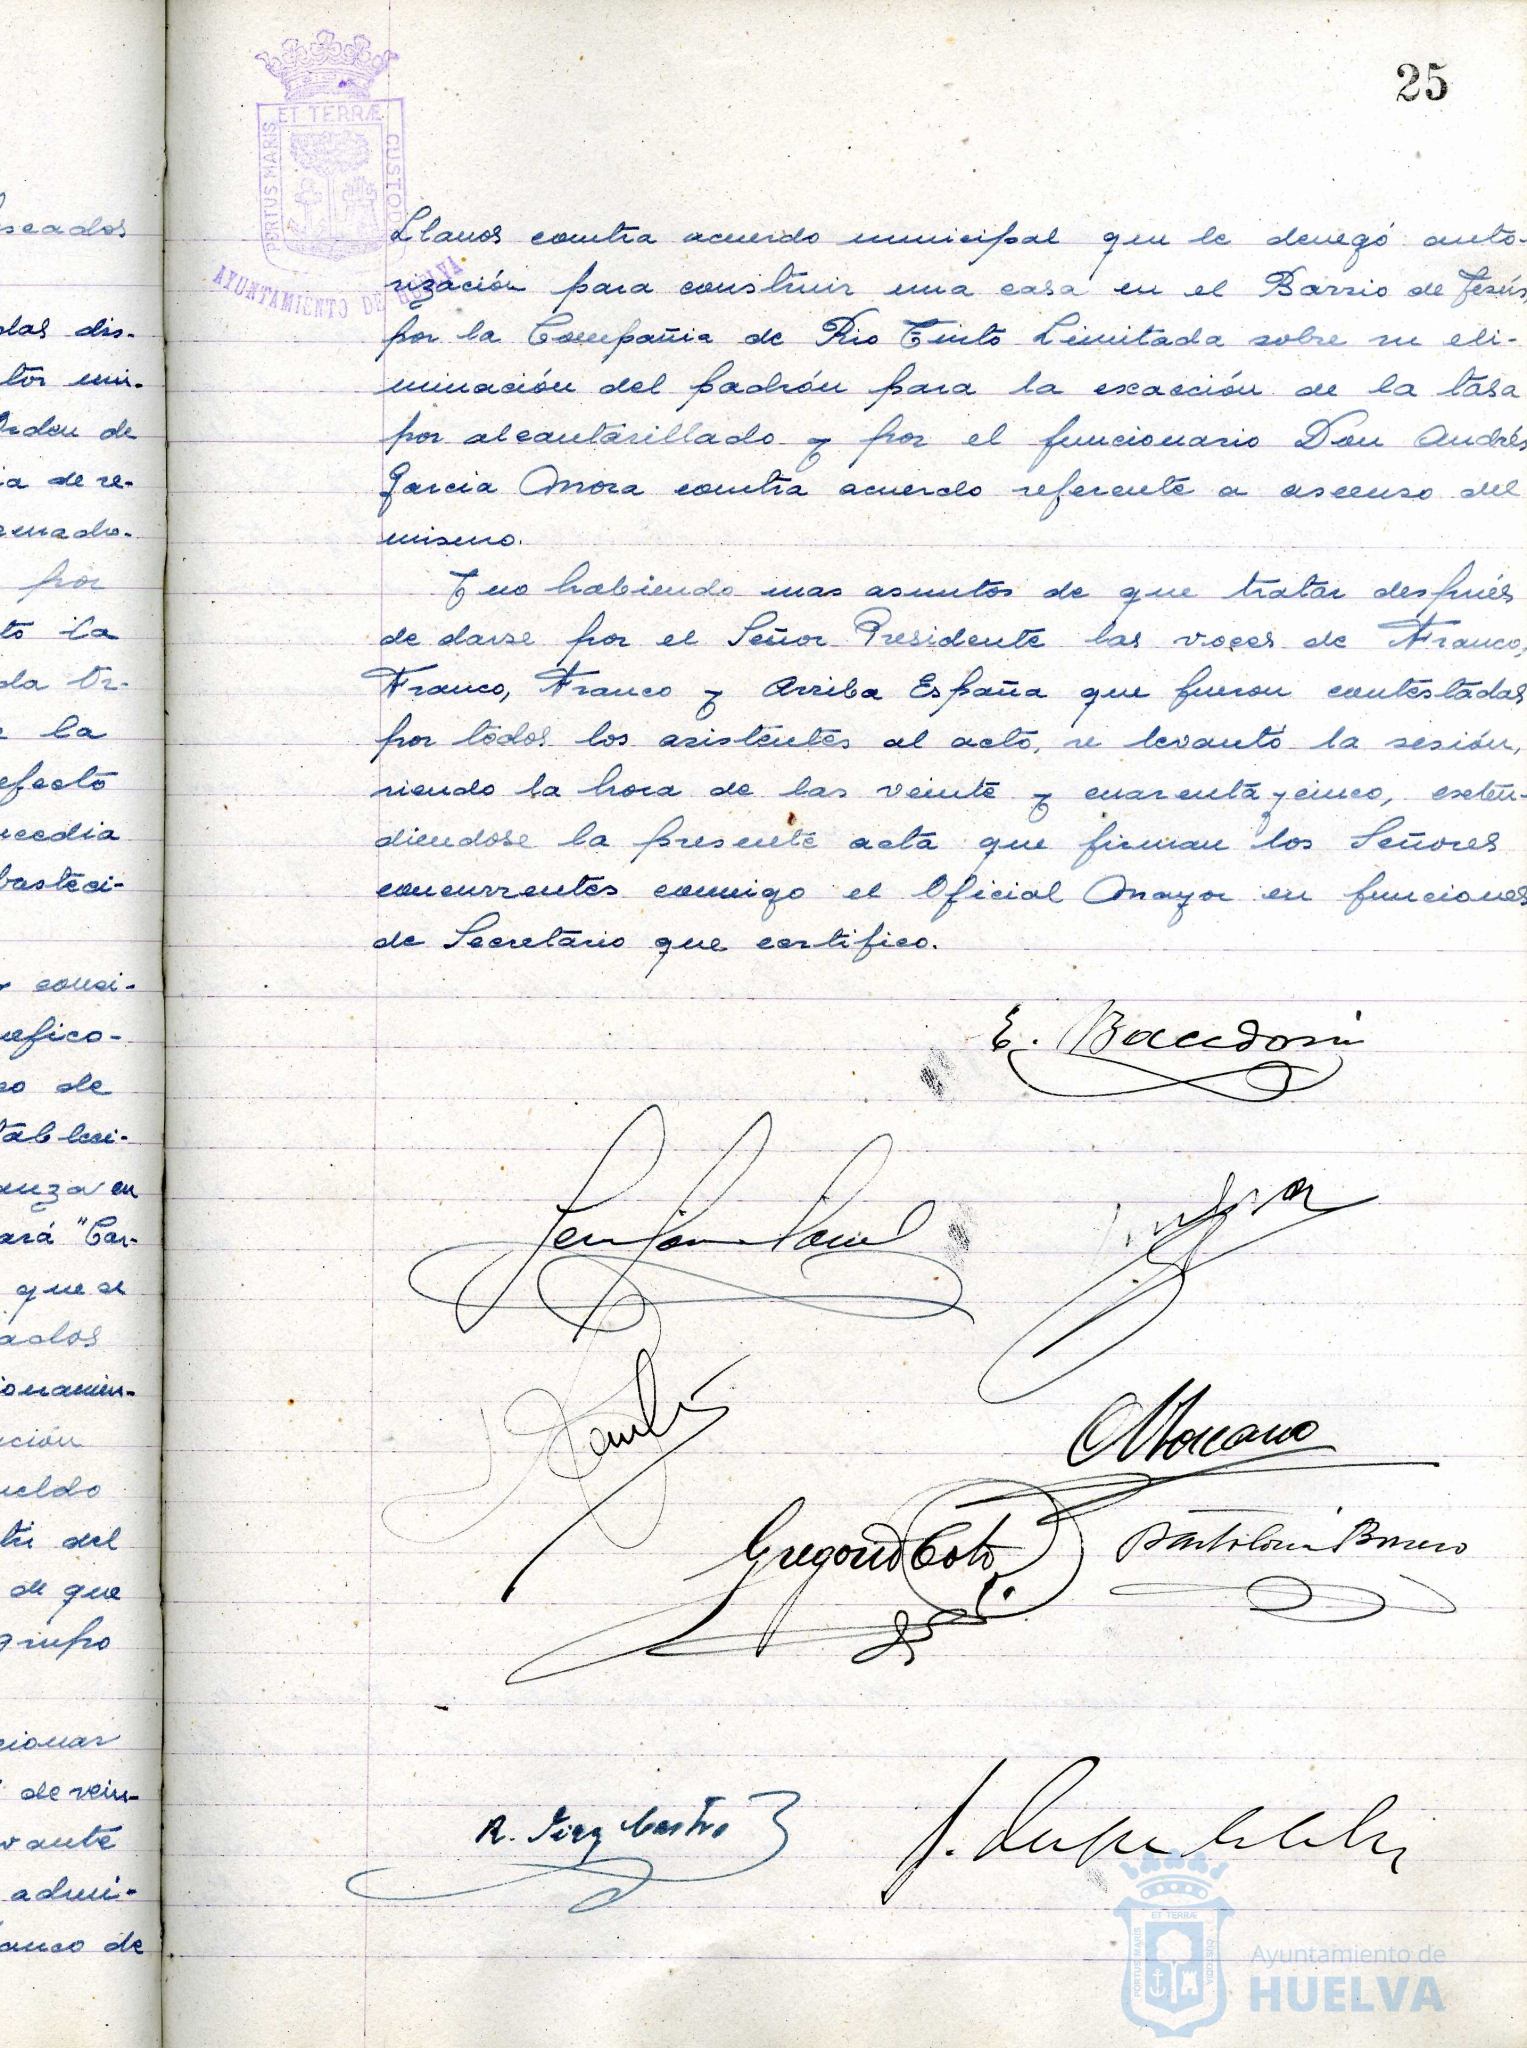 25
ET TERRÆ
PORTUS MARIS
CUSTOD
AYUNTAMIENTO DE HUELVA
Llanos contra acuerdo municipal que le denegó auto-
rización para construir una casa en el Barrio de Jesús,
por la Compañia de Rio Tinto Limitada sobre su eli-
minación del padrón para la exacción de la tasa
por alcantarillado y por el funcionario Don Andrés
Garcia Mora contra acuerdo referente a ascenso del
mismo.
Y no habiendo mas asuntos de que tratar después
de darse por el Señor Presidente las voces de Franco,
Franco, Franco y Arriba España que fueron contestadas
por todos los asistentes al acto, se levantó la sesión,
siendo la hora de las veinte y cuarenta y cinco, exten-
diendose la presente acta que firman los Señores
concurrentes conmigo el Oficial Mayor en funciones
de Secretario que certifico.
E.
Gregorio Coto
R. Castro
seados
das dis-
Orden de
ia de re-
por
to la
da Or-
la
efecto
basteci-
consi-
de
tableci-
anza en
ará "Car-
que se
ados
ionamien-
ción
ueldo
del
de que
grupo
cionar
de vein-
vante
admi-
anco de
ET TERRÆ
PORTUS MARIS
CUSTODIA
Ayuntamiento de
HUELVA